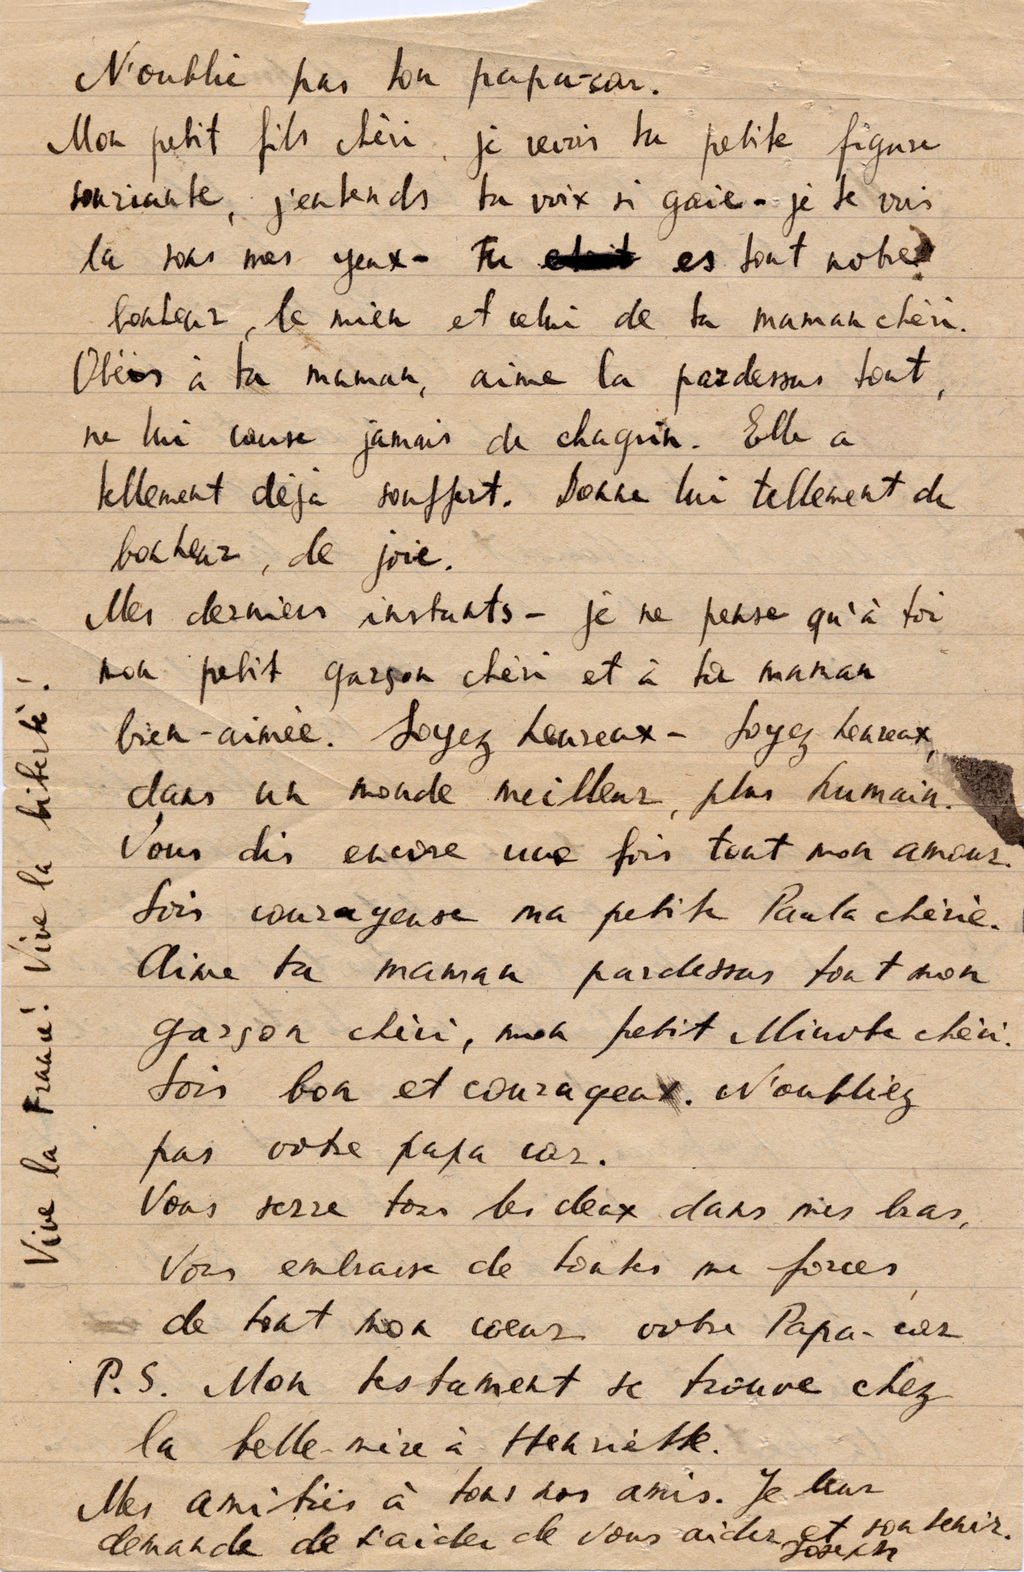 N'oublie pas ton papa-car.
Mon petit fils chéri, je revois ta petite figure
souriante, j'entends ta voix si gaie - je te vois
la sous mes yeux - Tu es tout notre
bonheur, le mien et celui de ta maman chéri.
Obéis à ta maman, aime la pardessus tout,
ne lui cause jamais de chagrin. Elle a
tellement déjà souffert. Donne lui tellement de
bonheur, de joie.
Mes derniers instants - je ne pense qu'à toi
mon petit garçon chéri et à ta maman
bien-aimée. Soyez heureux - Soyez heureux,
dans un monde meilleur, plus humain.
Vous dis encore une fois tout mon amour.
Sois courageuse ma petite Paula chérie.
Aime ta maman pardessus tout mon
garçon chéri, mon petit Minote chéri.
Sois bon et courageux. N'oubliez
pas votre papa car.
Vous serre tous les deux dans mes bras,
Vous embrasse de toutes me forces
de tout mon coeur votre Papa-car
P.S. Mon testament se trouve chez
la belle-mère à Henriette.
Mes amitiés à tous nos amis. Je leur
demande de t'aider de vous aider et soutenir.
Joseph
Vive la France! Vive la liberté!